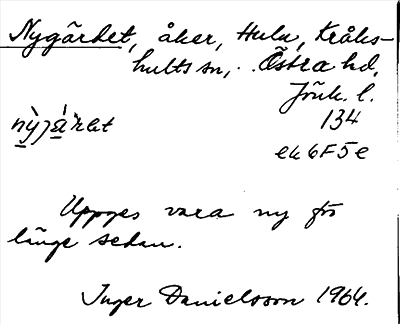 Nygärdet, åker, Hula, Kråks-
hults sn, Östra hd,
Jönk. l.
134
ek 6F5e
Uppges vara ny för
länge sedan.
Inger Danielsson 1964.